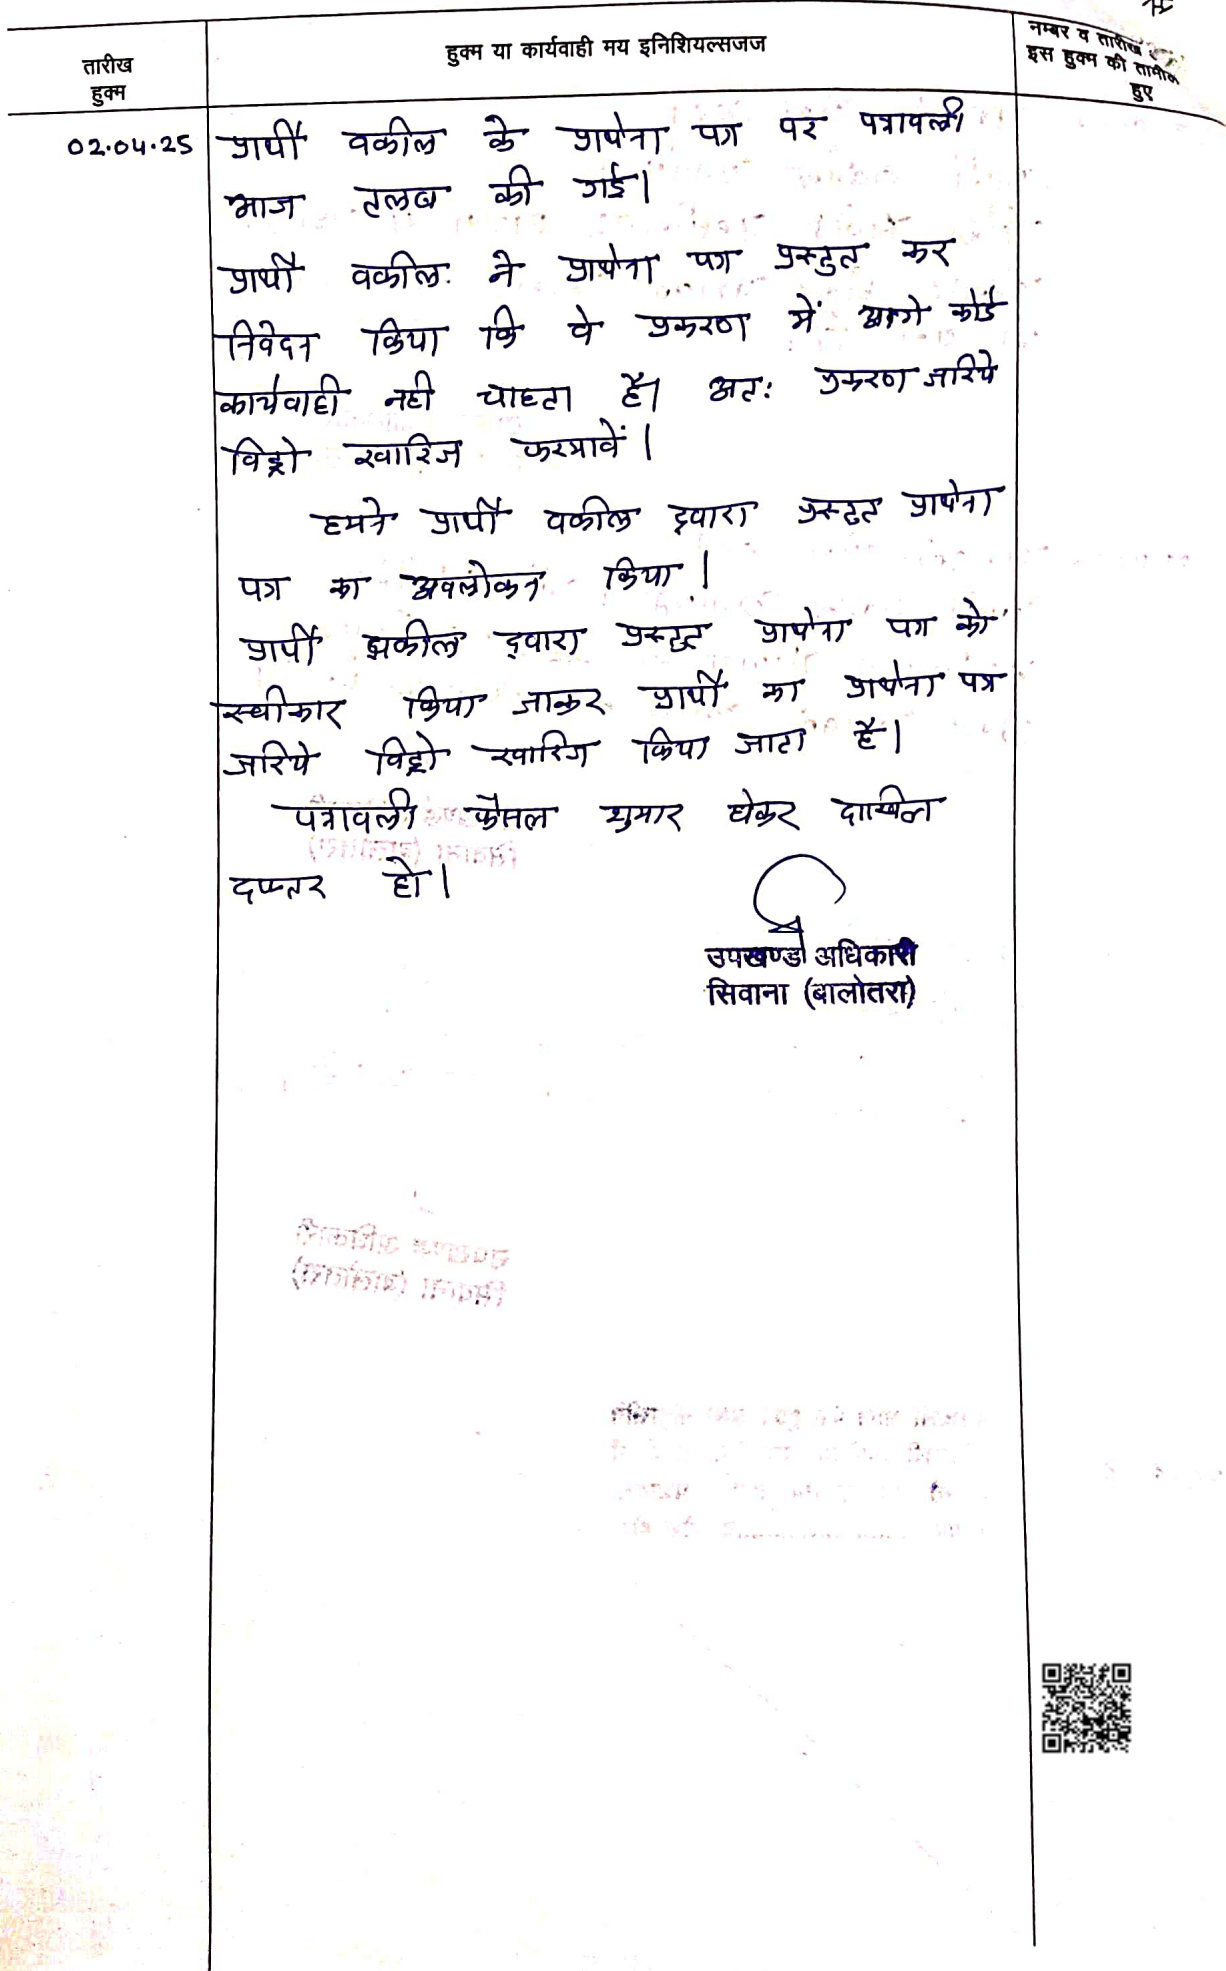 तारीख
हुक्म
हुक्म या कार्यवाही मय इनिशियल्सजज
नम्बर व तारीख
इस हुक्म की तामील
हुए
02.04.25
प्रार्थी वकील के प्रार्थना पत्र पर पत्रावली
आज तलब की गई।
प्रार्थी वकील ने प्रार्थना पत्र प्रस्तुत कर
निवेदन किया कि वे प्रकरण में आगे कोई
कार्यवाही नही चाहता है। अतः प्रकरण जरिये
विड्रो खारिज फरमावें।
हमने प्रार्थी वकील द्वारा प्रस्तुत प्रार्थना
पत्र का अवलोकन किया।
प्रार्थी वकील द्वारा प्रस्तुत प्रार्थना पत्र को
स्वीकार किया जाकर प्रार्थी का प्रार्थना पत्र
जरिये विड्रो खारिज किया जाता है।
पत्रावली फैसल शुमार होकर दाखिल
दफ्तर हो।
उपखण्ड अधिकारी
सिवाना (बालोतरा)